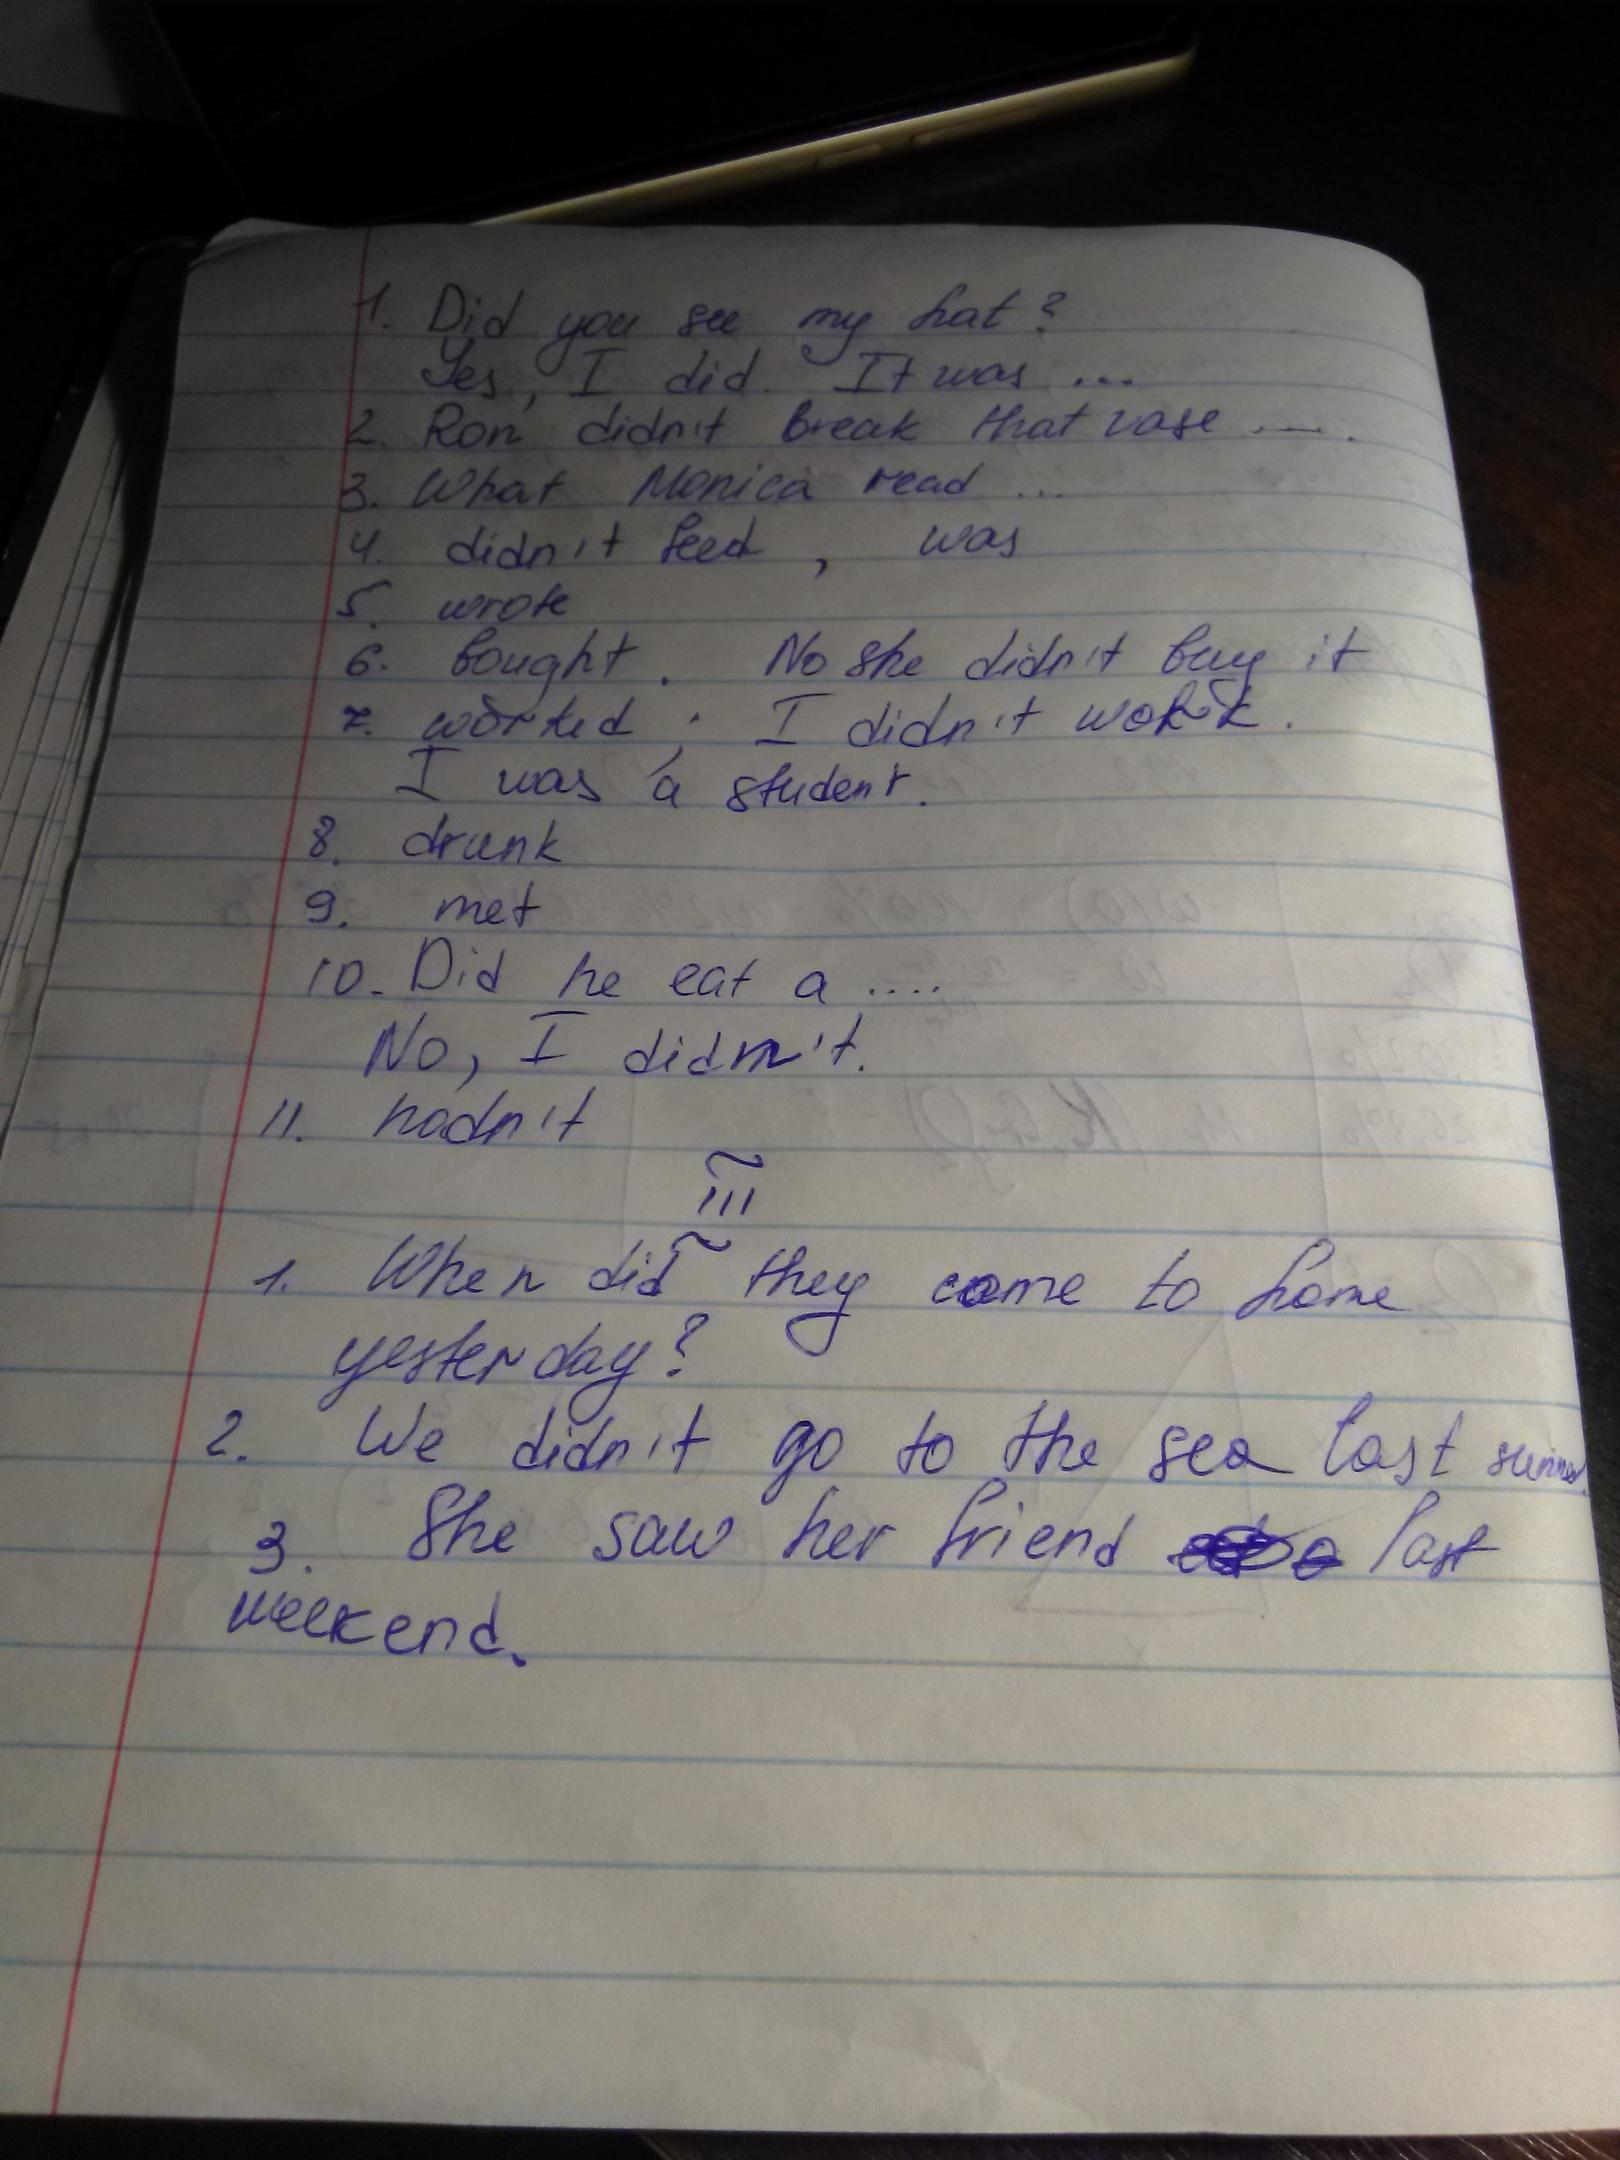 1. Did you see my hat?
Yes, I did. It was ...
2. Ron didn't break that vase .....
3. What Monica read ...
4. didn't feed, was
5. wrote
6. bought. No she didn't buy it
7. worked; I didn't work.
I was a student.
8. drunk
9. met
10. Did he eat a ....
No, I didn't.
11. hadn't
III
1. When did they come to home
yesterday?
2. We didn't go to the sea last
3. She saw her friend last
weekend.